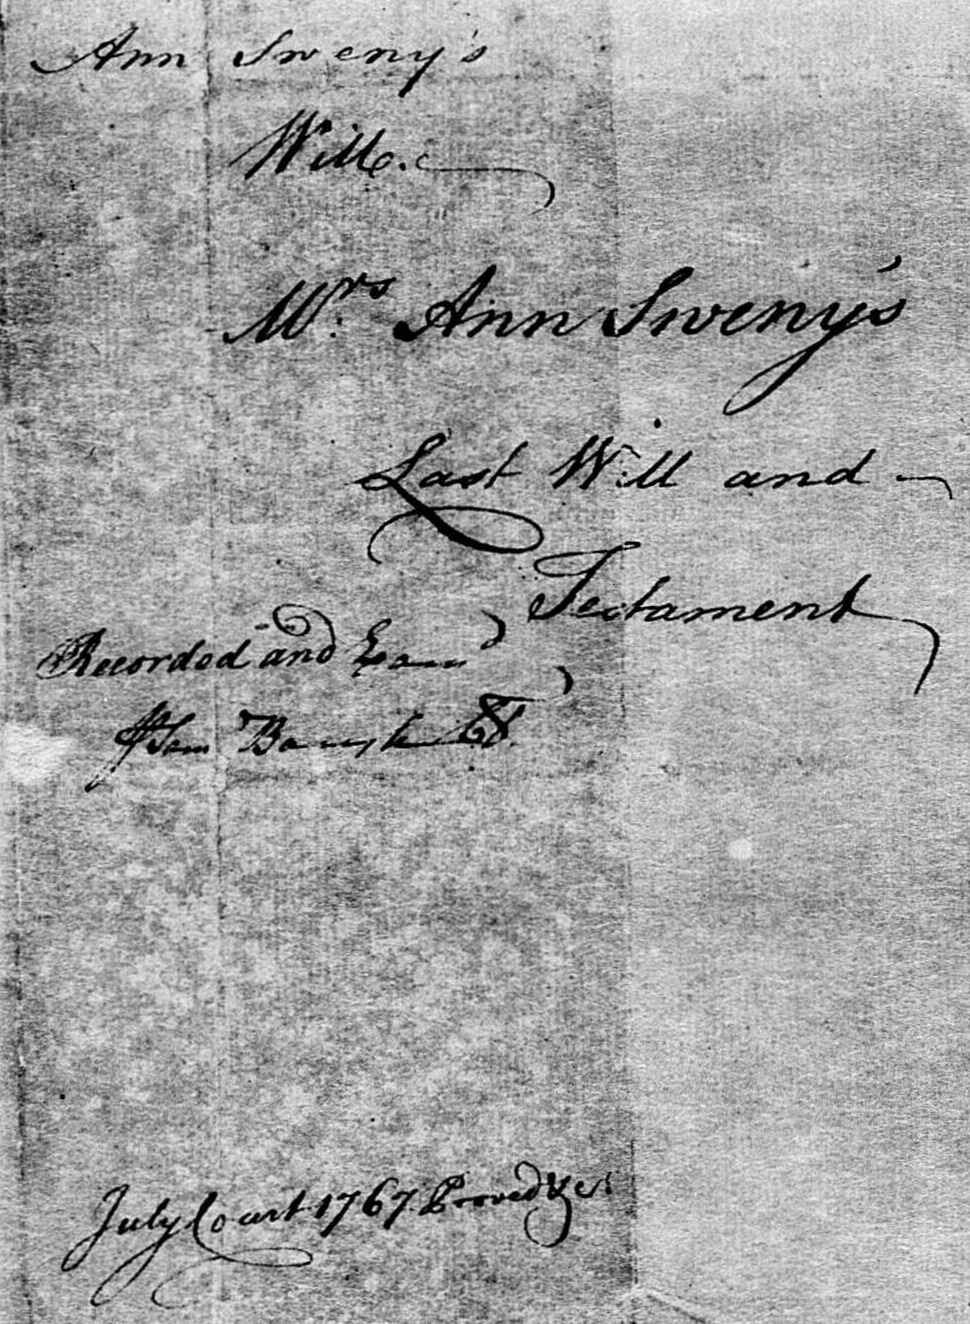 Ann Sweny's
Will.
Mrs. Ann Sweny's
Last Will and
Testament
Recorded and Exam'd
July Court 1767 Proved &c.